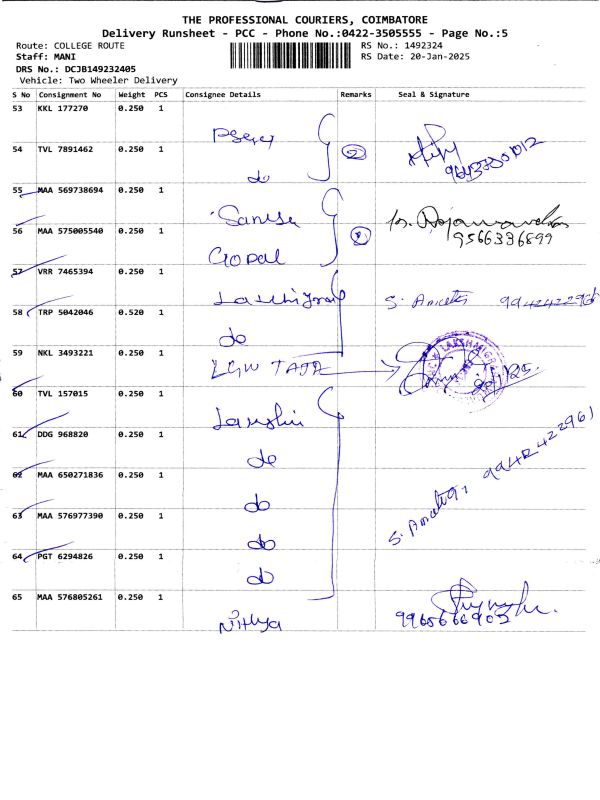 THE PROFESSIONAL COURIERS, COIMBATORE
Delivery Runsheet - PCC - Phone No.:0422-3505555 - Page No.:5
Route: COLLEGE ROUTE RS No.: 1492324
Staff: MANI RS Date: 20-Jan-2025
DRS No.: DCJB149232405
Vehicle: Two Wheeler Delivery
S No Consignment No Weight PCS Consignee Details Remarks Seal & Signature
53 KKL 177270 0.250 1
54 TVL 7891462 0.250 1
do
55 MAA 569738694 0.250 1
56 MAA 575005540 0.250 1
9566336899
Gopal
57 VRR 7465394 0.250 1
58 TRP 5042046 0.520 1
do
59 NKL 3493221 0.250 1
60 TVL 157015 0.250 1
61 DDG 968820 0.250 1
do
62 MAA 650271836 0.250 1
do
63 MAA 576977390 0.250 1
do
64 PGT 6294826 0.250 1
do
65 MAA 576805261 0.250 1
Nithya